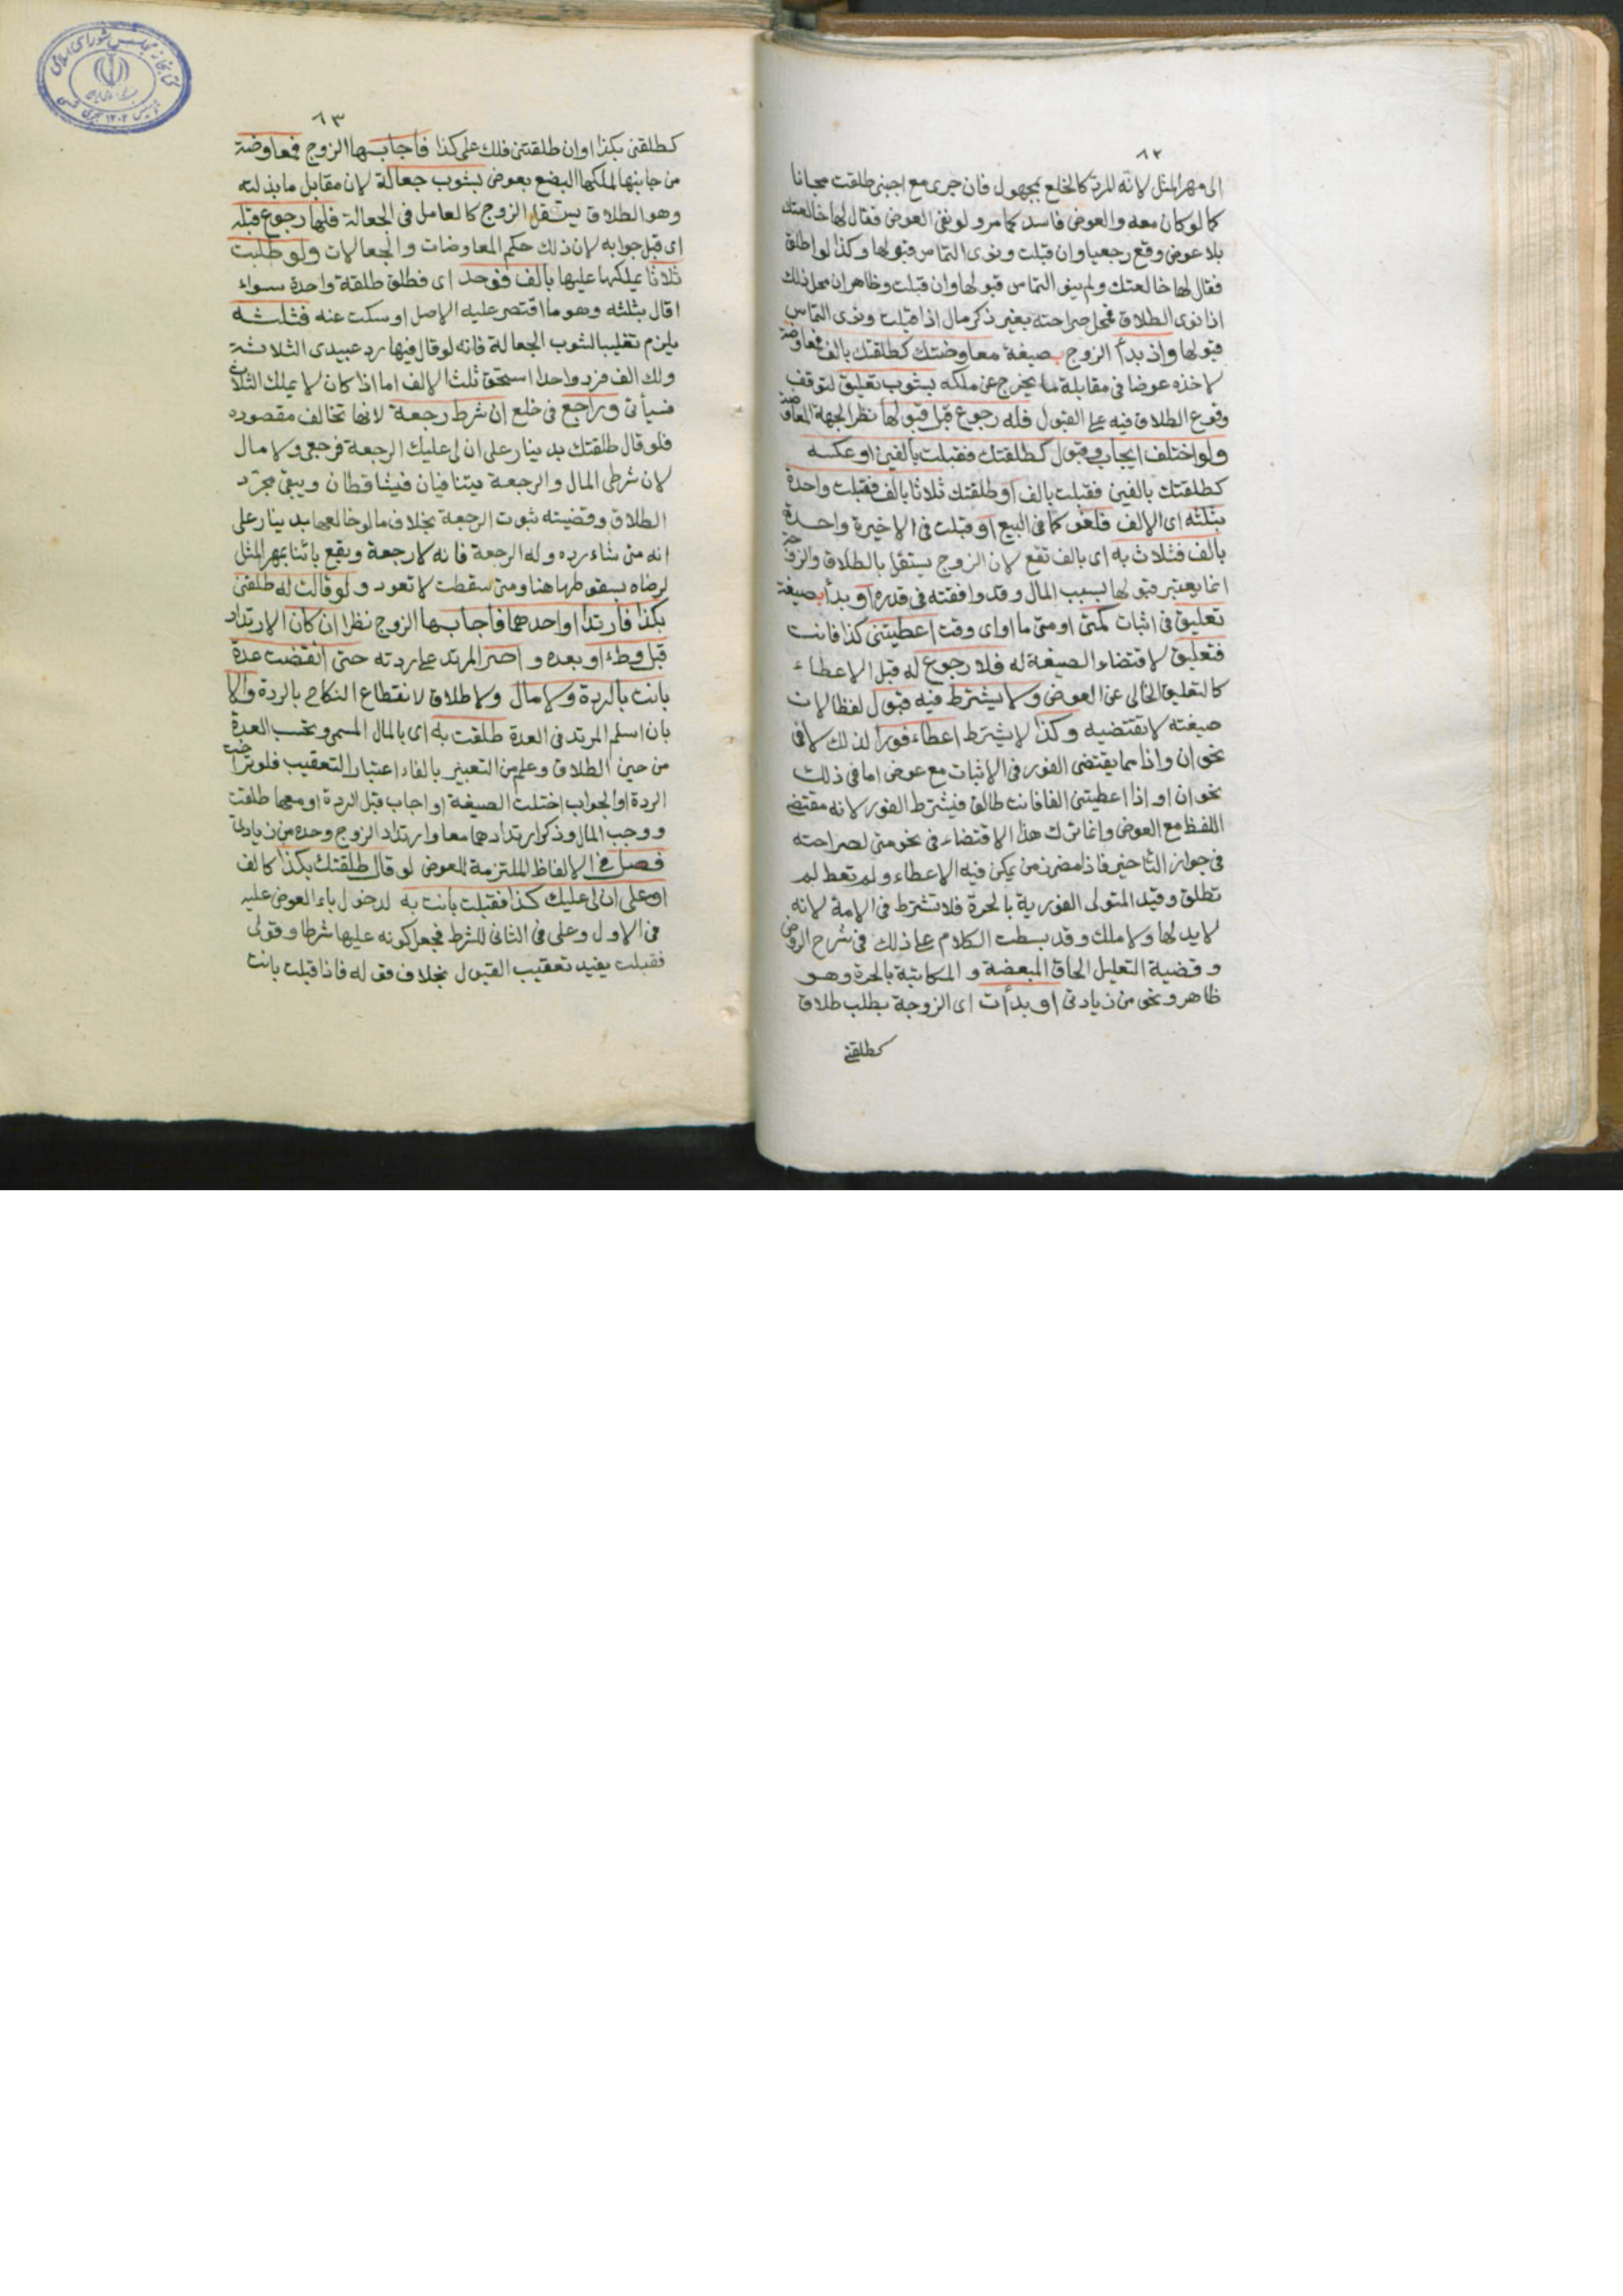 ٨٢
الى مهر المثل لانه المرد كالخلع بمجهول فان جرى مع اجنبى طلقت مجانا
كما لو كان معه والعوض فاسد كما مر ولو نفى العوض فقال لها خالعتك
بلا عوض وقع رجعيا وان قبلت ونوى التماس قبولها وكذا لو اطلق
فقال لها خالعتك ولم ينو التماس قبولها وان قبلت وظاهر ان محل ذلك
اذا نوى الطلاق فمحل صراحته بغير ذكر مال اذا قبلت ونوى التماس
قبولها واذ بدأ الزوج بصيغة معاوضتك كطلقتك بالف فمعاوضة
لاخذه عوضا فى مقابلة ما يخرج عن ملكه بشوب تعليق لتوقف
وقوع الطلاق فيه على القبول فله رجوع قبل قبولها نظرا لجهة المعاوضة
ولو اختلف ايجاب وقبول كطلقتك فقبلت بألفين او عكسه
كطلقتك بالفين فقبلت بالف او طلقتك ثلاثا بالف فقبلت واحدة
بثلثه اى الالف فلغو كما فى البيع او قبلت فى الاخيرة واحدة
بألف فثلاث به اى بالف تقع لان الزوج يستقل بالطلاق والزوجة
انما يعتبر قبولها بسبب المال وقد وافقته فى قدره او بدأ بصيغة
تعليق فى اثبات كمتى او متى ما او اى وقت اعطيتنى كذا فانت
فتعليق لاقتضاء الصيغة له فلا رجوع له قبل الاعطاء
كالتعليق الخالى عن العوض ولا يشترط فيه قبول لفظا لان
صيغته لا تقتضيه وكذا لا يشترط اعطاء فورا لذلك لا فى
نحو ان واذا مما يقتضى الفور فى الاثبات مع عوض اما فى ذلك
نحو ان او اذا اعطيتنى الفا فانت طالق فيشترط الفور لانه مقتضى
اللفظ مع العوض وانما ترك هذا الاقتضاء فى نحو متى لصراحته
فى جواز التاخير فاذا مضى زمن يمكن فيه الاعطاء ولم تعط لم
تطلق وقيد المتولى الفورية بالحرة فلا تشترط فى الامة لانه
لا يد لها ولا ملك وقد بسطت الكلام على ذلك فى شرح الروض
وقضية التعليل الحاق المبعضة والمكاتبة بالحرة وهو
ظاهر ونحو من زيادتى او بدأت اى الزوجة بطلب طلاق
كطلقنى
٨٣
كطلقنى بكذا او ان طلقتنى فلك على كذا فاجابها الزوج فمعاوضة
من جانبها لملكها البضع بعوض بشوب جعالة لان مقابل ما بذلته
وهو الطلاق يستقل الزوج كالعامل فى الجعالة فلها رجوع قبله
اى قبل جوابه لان ذلك حكم المعاوضات والجعالات ولو طلبت
ثلاثا يملكها عليها بألف فوحد اى فطلق طلقة واحدة سواء
اقال بثلثه وهو ما اقتصر عليه الاصل او سكت عنه فثلثه
يلزم تغليبا لشوب الجعالة فانه لو قال فيها رد عبيدى الثلاثة
ولك الف فرد واحدا استحق ثلث الالف اما اذا كان لا يملك الثلاث
فسيأتى وراجع فى خلع ان شرط رجعة لانها تخالف مقصوده
فلو قال طلقتك بدينار على ان لى عليك الرجعة فرجعى ولا مال
لان شرطى المال والرجعة يتنافيان فيتساقطان ويبقى مجرد
الطلاق وقضيته ثبوت الرجعة بخلاف ما لو خالعها بدينار على
انه متى شاء رده وله الرجعة فانه لا رجعة ويقع بائنا بمهر المثل
لرضاه بسقوطها هنا ومتى سقطت لا تعود ولو قالت له طلقنى
بكذا فارتدا او احدهما فأجابها الزوج نظرا ان كان الارتداد
قبل وطء او بعده واصر المرتد على ردته حتى انقضت عدة
بانت بالردة ولا مال ولا طلاق لانقطاع النكاح بالردة والا
بان اسلم المرتد فى العدة طلقت به اى بالمال المسمى وتحسب العدة
من حين الطلاق وعلم من التعبير بالفاء اعتبار التعقيب فلو تراخت
الردة او الجواب اختلت الصيغة او اجاب قبل الردة او معها طلقت
ووجب المال وذكر ارتدادهما معا وارتداد الزوج وحده من زيادتى
فصل فى الالفاظ الملتزمة للعوض لو قال طلقتك بكذا كالف
او على ان لى عليك كذا فقبلت بانت به لدخول باء العوض عليه
فى الاول وعلى فى الثانى للشرط فجعل كونه عليها شرطا وقولى
فقبلت يفيد تعقيب القبول بخلاف قوله فاذا قبلت بانت